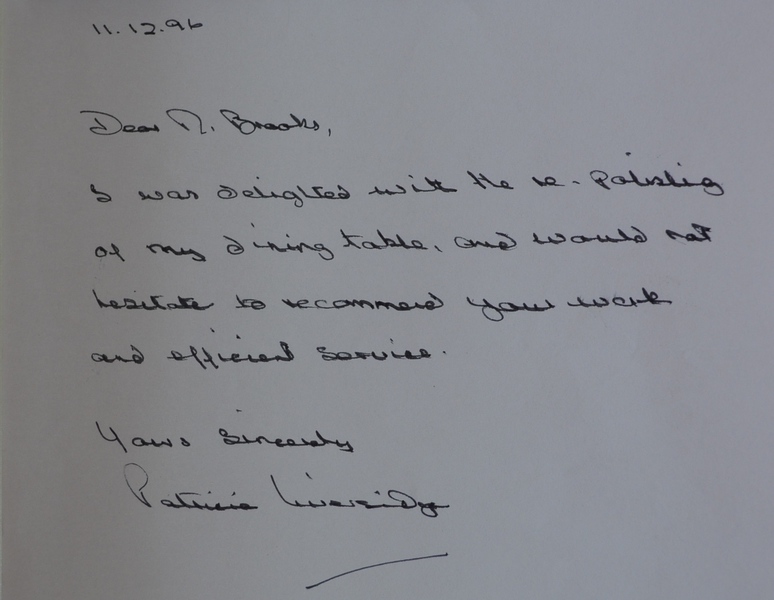 11.12.96
Dear M. Brooks,
I was delighted with the re-polishing
of my dining table, and would not
hesitate to recommend your work
and efficient service.
Yours sincerely
Patricia Liversidge